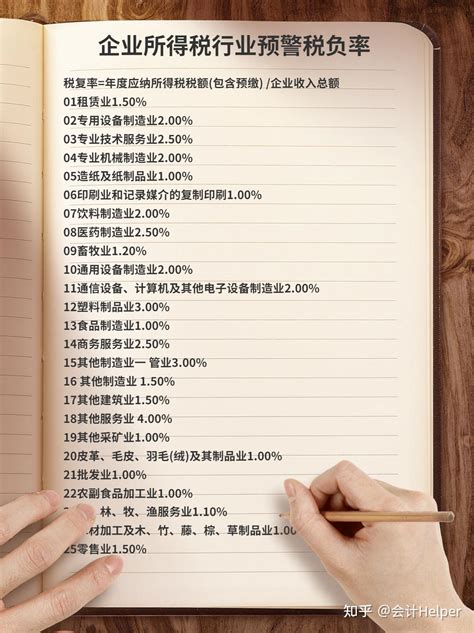 企业所得税行业预警税负率
税复率=年度应纳所得税税额(包含预缴) /企业收入总额
01租赁业1.50%
02专用设备制造业2.00%
03专业技术服务业2.50%
04专业机械制造业2.00%
05造纸及纸制品业1.00%
06印刷业和记录媒介的复制印刷1.00%
07饮料制造业2.00%
08医药制造业2.50%
09畜牧业1.20%
10通用设备制造业2.00%
11通信设备、计算机及其他电子设备制造业2.00%
12塑料制品业3.00%
13食品制造业1.00%
14商务服务业2.50%
15其他制造业一 管业3.00%
16 其他制造业 1.50%
17其他建筑业1.50%
18其他服务业 4.00%
19其他采矿业1.00%
20皮革、毛皮、羽毛(绒)及其制品业1.00%
21批发业1.00%
22农副食品加工业1.00%
林、牧、渔服务业1.10%
材加工及木、竹、藤、棕、草制品业1.00%
25零售业1.50%
知乎 @会计Helper